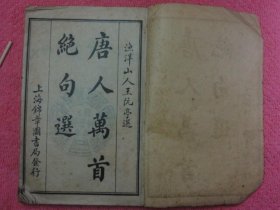 漁洋山人王阮亭選
唐人萬首
絕句選
上海錦章圖書局發行